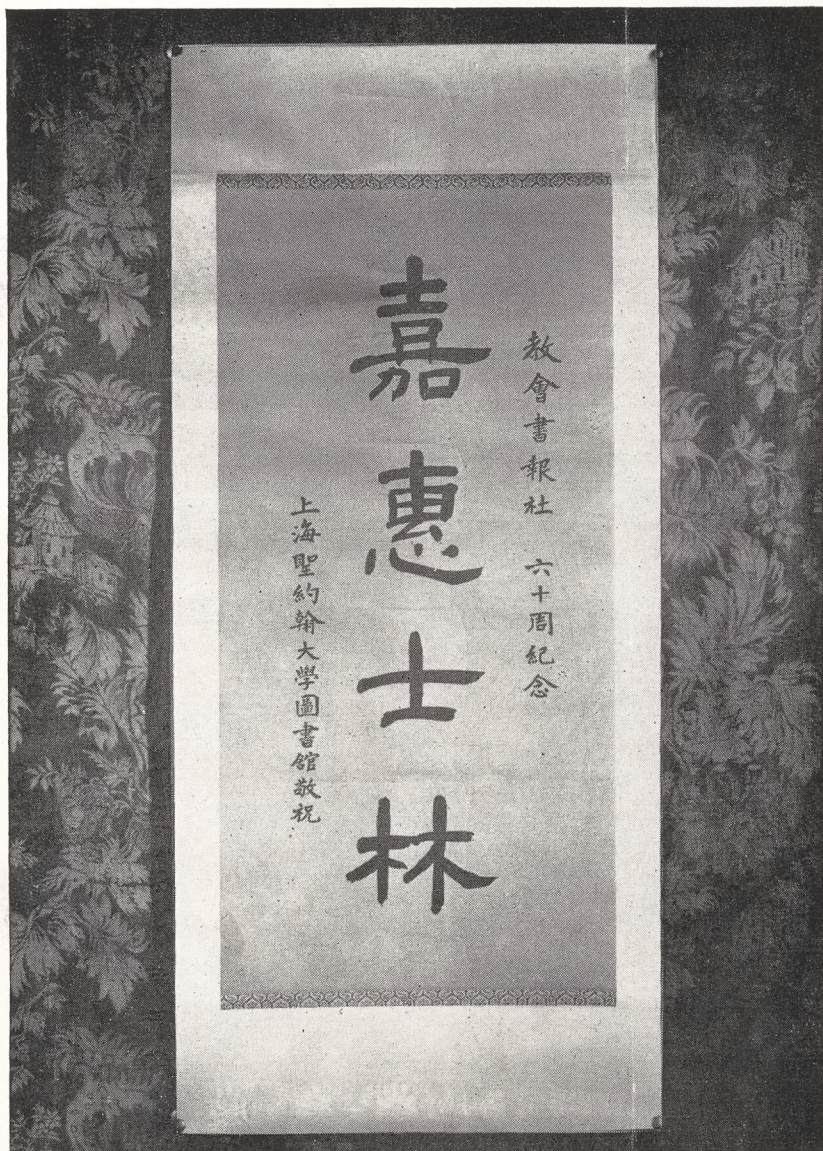 教會書報社 六十周紀念
嘉惠士林
上海聖約翰大學圖書館敬祝